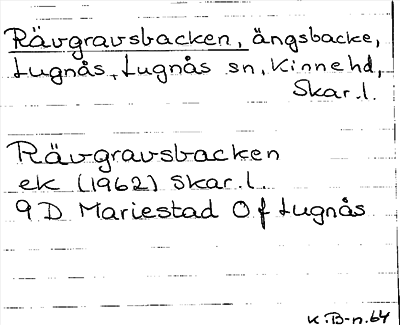 Rävgravsbacken, ängsbacke,
Lugnås, Lugnås sn, Kinnehd,
Skar.l.
Rävgravsbacken
ek (1962) Skar.l.
9 D Mariestad O.f Lugnås
K.B-n.64